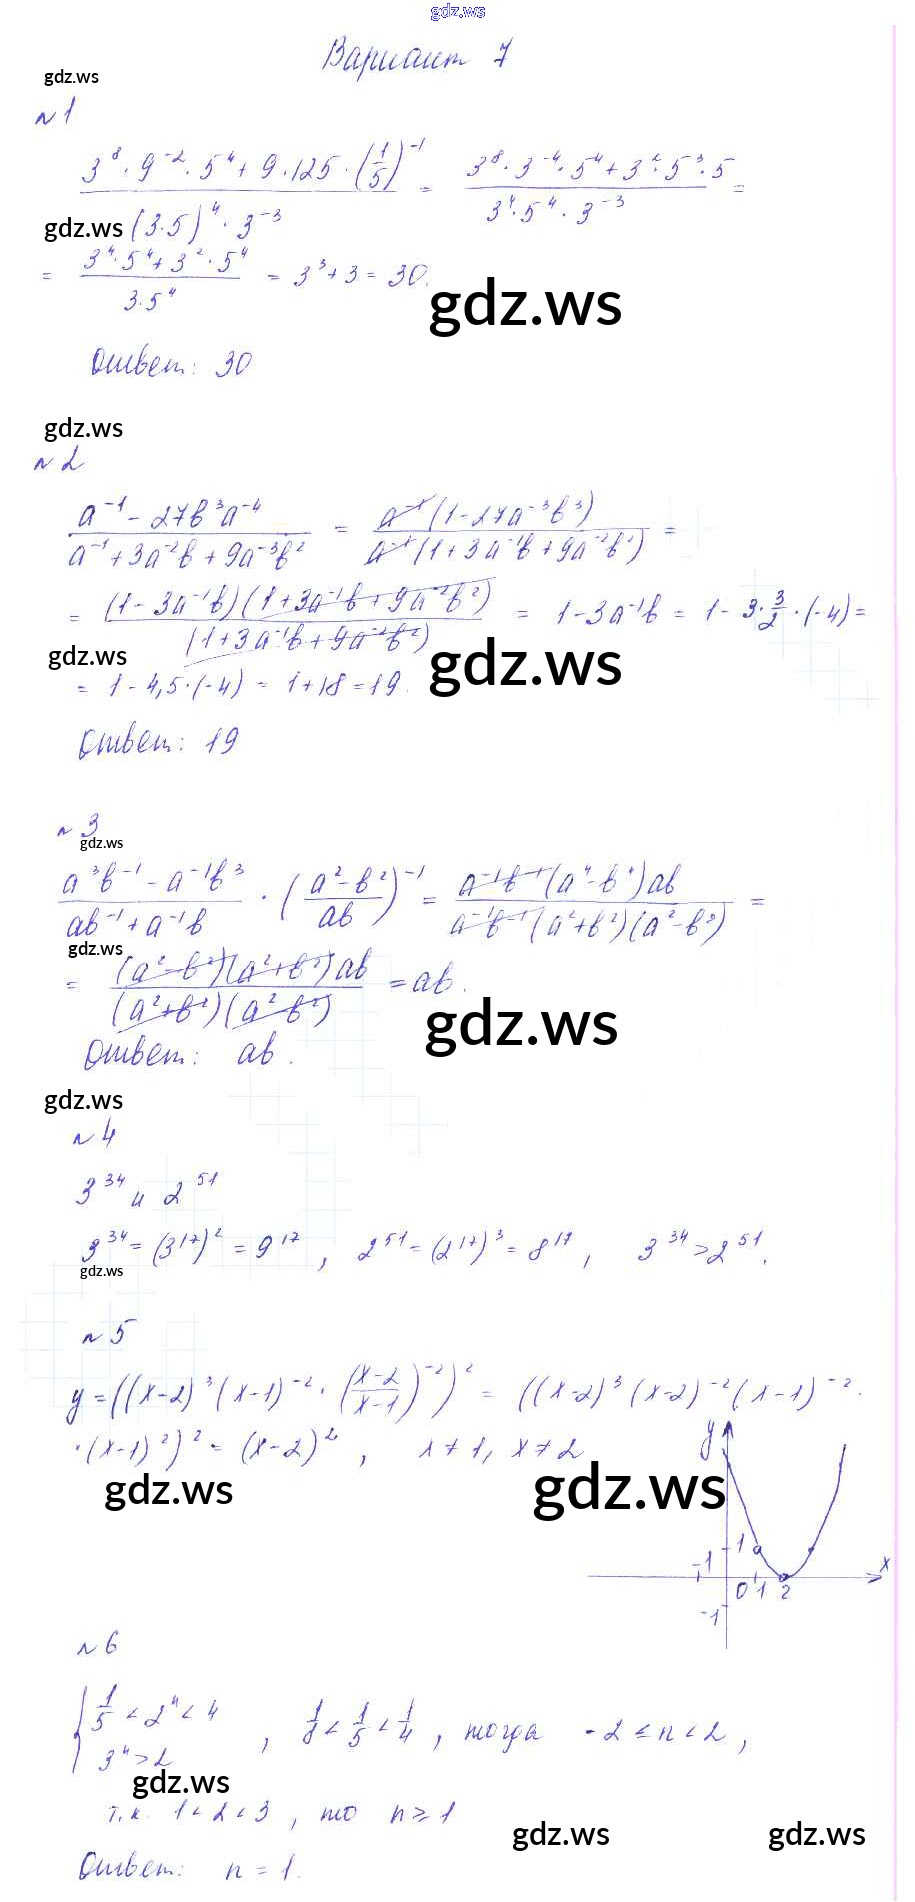 gdz.ws
Вариант 7
gdz.ws
№1
(3^8 · 9^-2 · 5^4 + 9 · 125 · (1/5)^-1) / ((3·5)^4 · 3^-3) = (3^8 · 3^-4 · 5^4 + 3^2 · 5^3 · 5) / (3^4 · 5^4 · 3^-3) =
gdz.ws
= (3^4 · 5^4 + 3^2 · 5^4) / (3 · 5^4) = 3^3 + 3 = 30.
gdz.ws
Ответ: 30
gdz.ws
№2
(a^-1 - 27b^3a^-4) / (a^-1 + 3a^-2b + 9a^-3b^2) = (a^-1(1 - 27a^-3b^3)) / (a^-1(1 + 3a^-1b + 9a^-2b^2)) =
= ((1 - 3a^-1b)(1 + 3a^-1b + 9a^-2b^2)) / (1 + 3a^-1b + 9a^-2b^2) = 1 - 3a^-1b = 1 - 3 · 3/2 · (-4) =
gdz.ws gdz.ws
= 1 - 4,5 · (-4) = 1 + 18 = 19.
Ответ: 19
№3
gdz.ws
(a^3b^-1 - a^-1b^3) / (ab^-1 + a^-1b) · ((a^2 - b^2) / ab)^-1 = (a^-1b^-1(a^4 - b^4)ab) / (a^-1b^-1(a^2 + b^2)(a^2 - b^2)) =
gdz.ws
= ((a^2 - b^2)(a^2 + b^2)ab) / ((a^2 + b^2)(a^2 - b^2)) = ab.
gdz.ws
Ответ: ab.
gdz.ws
№4
3^34 и 2^51
3^34 = (3^17)^2 = 9^17, 2^51 = (2^17)^3 = 8^17, 3^34 > 2^51.
gdz.ws
№5
y = ((x-2)^3 (x-1)^-2 · ((x-2)/(x-1))^-2)^2 = ((x-2)^3 (x-2)^-2 (x-1)^-2 ·
· (x-1)^2)^2 = (x-2)^2, x ≠ 1, x ≠ 2
gdz.ws gdz.ws
y
1
-1
x
0 1 2
-1
№6
{ 1/5 < 2^n < 4
3^n > 2 , 1/8 < 1/5 < 1/4, тогда -2 ≤ n < 2,
gdz.ws
т.к. 1 < 2 < 3, то n ≥ 1
gdz.ws gdz.ws
Ответ: n = 1.